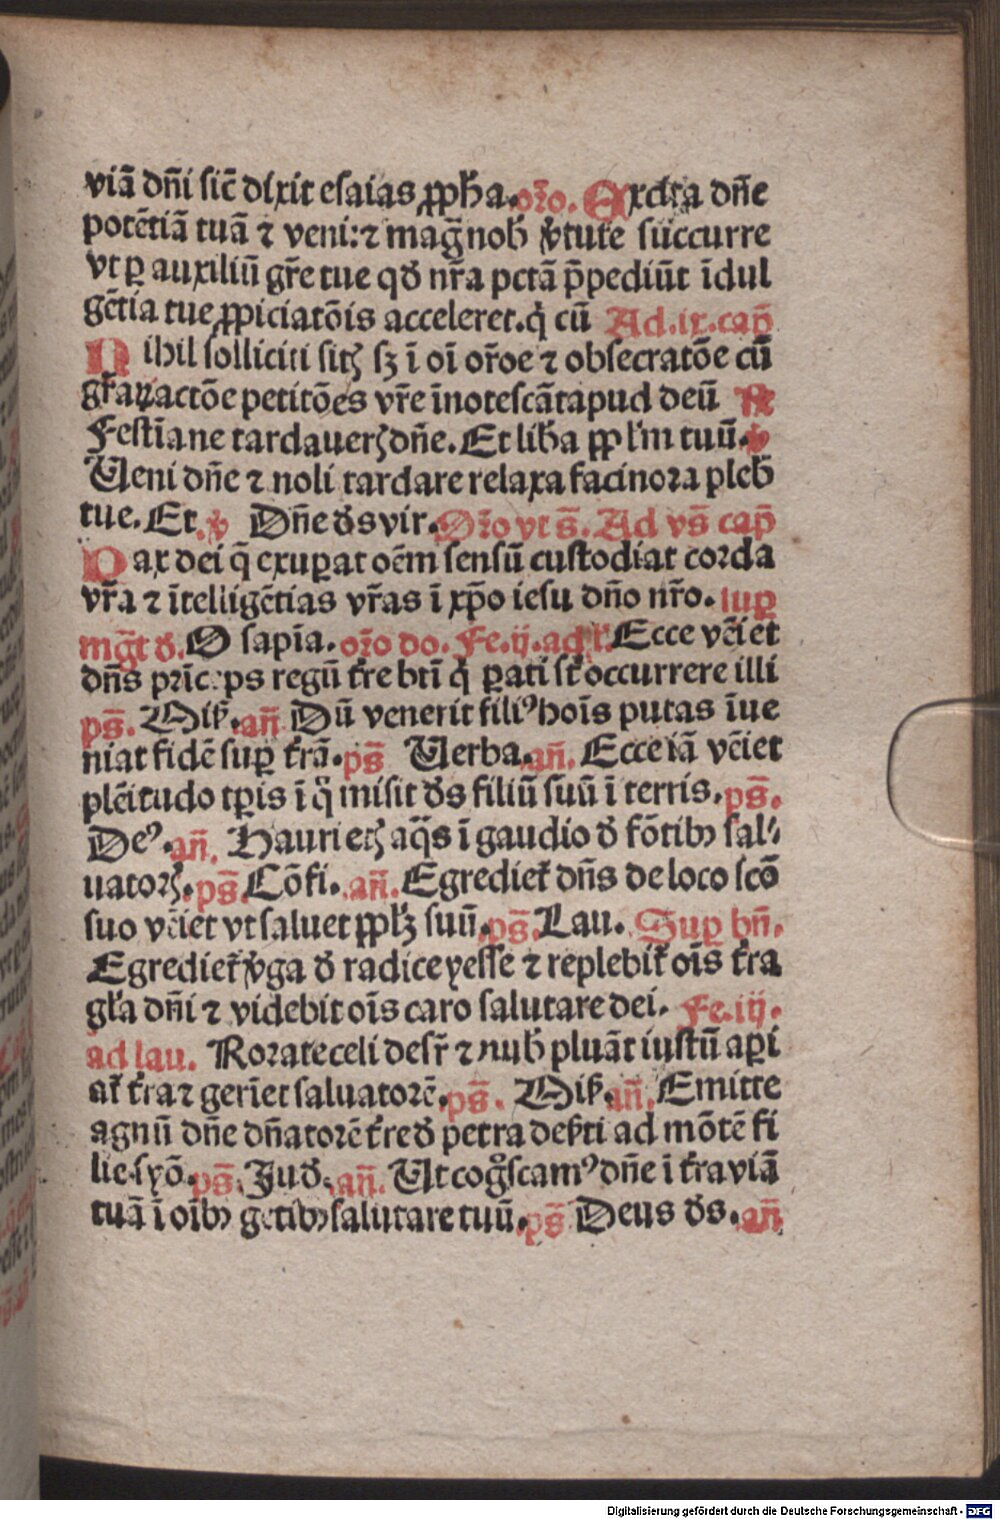 viā dn̄i sic̄ dixit esaias ꝓpħa. or̄o. Excita dn̄e
potētiā tuā ⁊ veni: ⁊ maḡ nob̄ v̓tute succurre
vt ꝑ auxiliū gr̄e tue qd̄ nr̄a pctā p̄pediūt īdul
gētia tue ꝓpiciatōis acceleret. q̇ cū Ad .ix. cap̄
Nihil solliciti sitꝫ sꝫ ī oī or̄oe ⁊ obsecratōe cū
gr̄aꝝ actōe petitōes vr̄e īnotescāt apud deū ℞
Festīa ne tardauerꝫ dn̄e. Et lib̄a ppl̓m tuū. ℣
Veni dn̄e ⁊ noli tardare relaxa facinora pleb̄
tue. Et. ℣ Dn̄e d̄s vir. Or̄o vt s̄. Ad vs̄ cap̄
Pax dei q̄ exuꝑat oēm sensū custodiat corda
vr̄a ⁊ ītelligētias vr̄as ī xp̄o iesu dn̄o nr̄o. suꝑ
mḡt d̄. O sapīa. or̄o do. Fe. ij. ad l̓. Ecce vēiet
dn̄s prīceps regū t̓re btī q̇ ꝑati st̄ occurrere illi
ps̄. Mis̓. an̄ Dū venerit filiꝰ hoīs putas īue
niat fidē suꝑ t̓rā. ps̄ Verba. an̄. Ecce iā vēiet
plēitudo tꝑis ī q̊ misit d̄s filiū suū ī terris. ps̄.
Deꝰ. an̄. Haurietꝫ aq̄s ī gaudio d̄ fōtibꝫ sal⸗
uatorꝭ. ps̄. Cōfi. an̄. Egrediet̓ dn̄s de loco scō
suo vēiet vt saluet pplꝫ suū. ps̄. Lau. Suꝑ bn̄.
Egrediet̓ v̓ga d̄ radice yesse ⁊ replebit̓ oīs t̓ra
gl̓a dn̄i ⁊ videbit oīs caro salutare dei. Fe. iij.
ad lau. Rorate celi desr̄ ⁊ nub̄ pluāt iustū aꝑi
at̓ t̓ra ⁊ gerīet saluatorē. ps̄. Mis̓. an̄. Emitte
agnū dn̄e dn̄atorē t̓re d̄ petra des̓ti ad mōtē fi
lie syō. ps̄. Jud̄. an̄. Vt cog̊scamꝰ dn̄e ī t̓ra viā
tuā ī oībꝫ gētibꝫ salutare tuū. ps̄ Deus d̄s. an̄
Digitalisierung gefördert durch die Deutsche Forschungsgemeinschaft - DFG